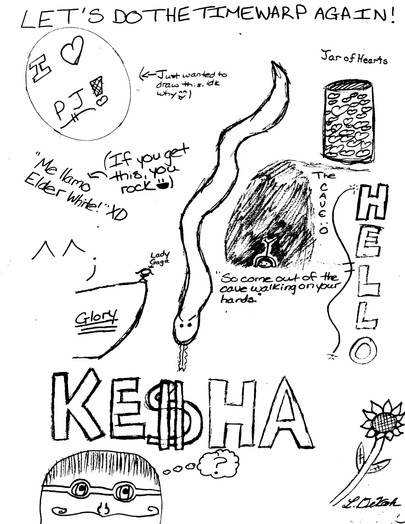 LET'S DO THE TIMEWARP AGAIN!
I ♡
PJ!
(← Just wanted to
draw this. idk
why)
Jar of Hearts
"Me llamo
Elder White!" XD
(If you get
this, you
rock)
The
CAVE :O
"So come out of the
cave walking on your
hands."
HELLO
^^;
Lady
Gaga
Glory
KE$HA
?